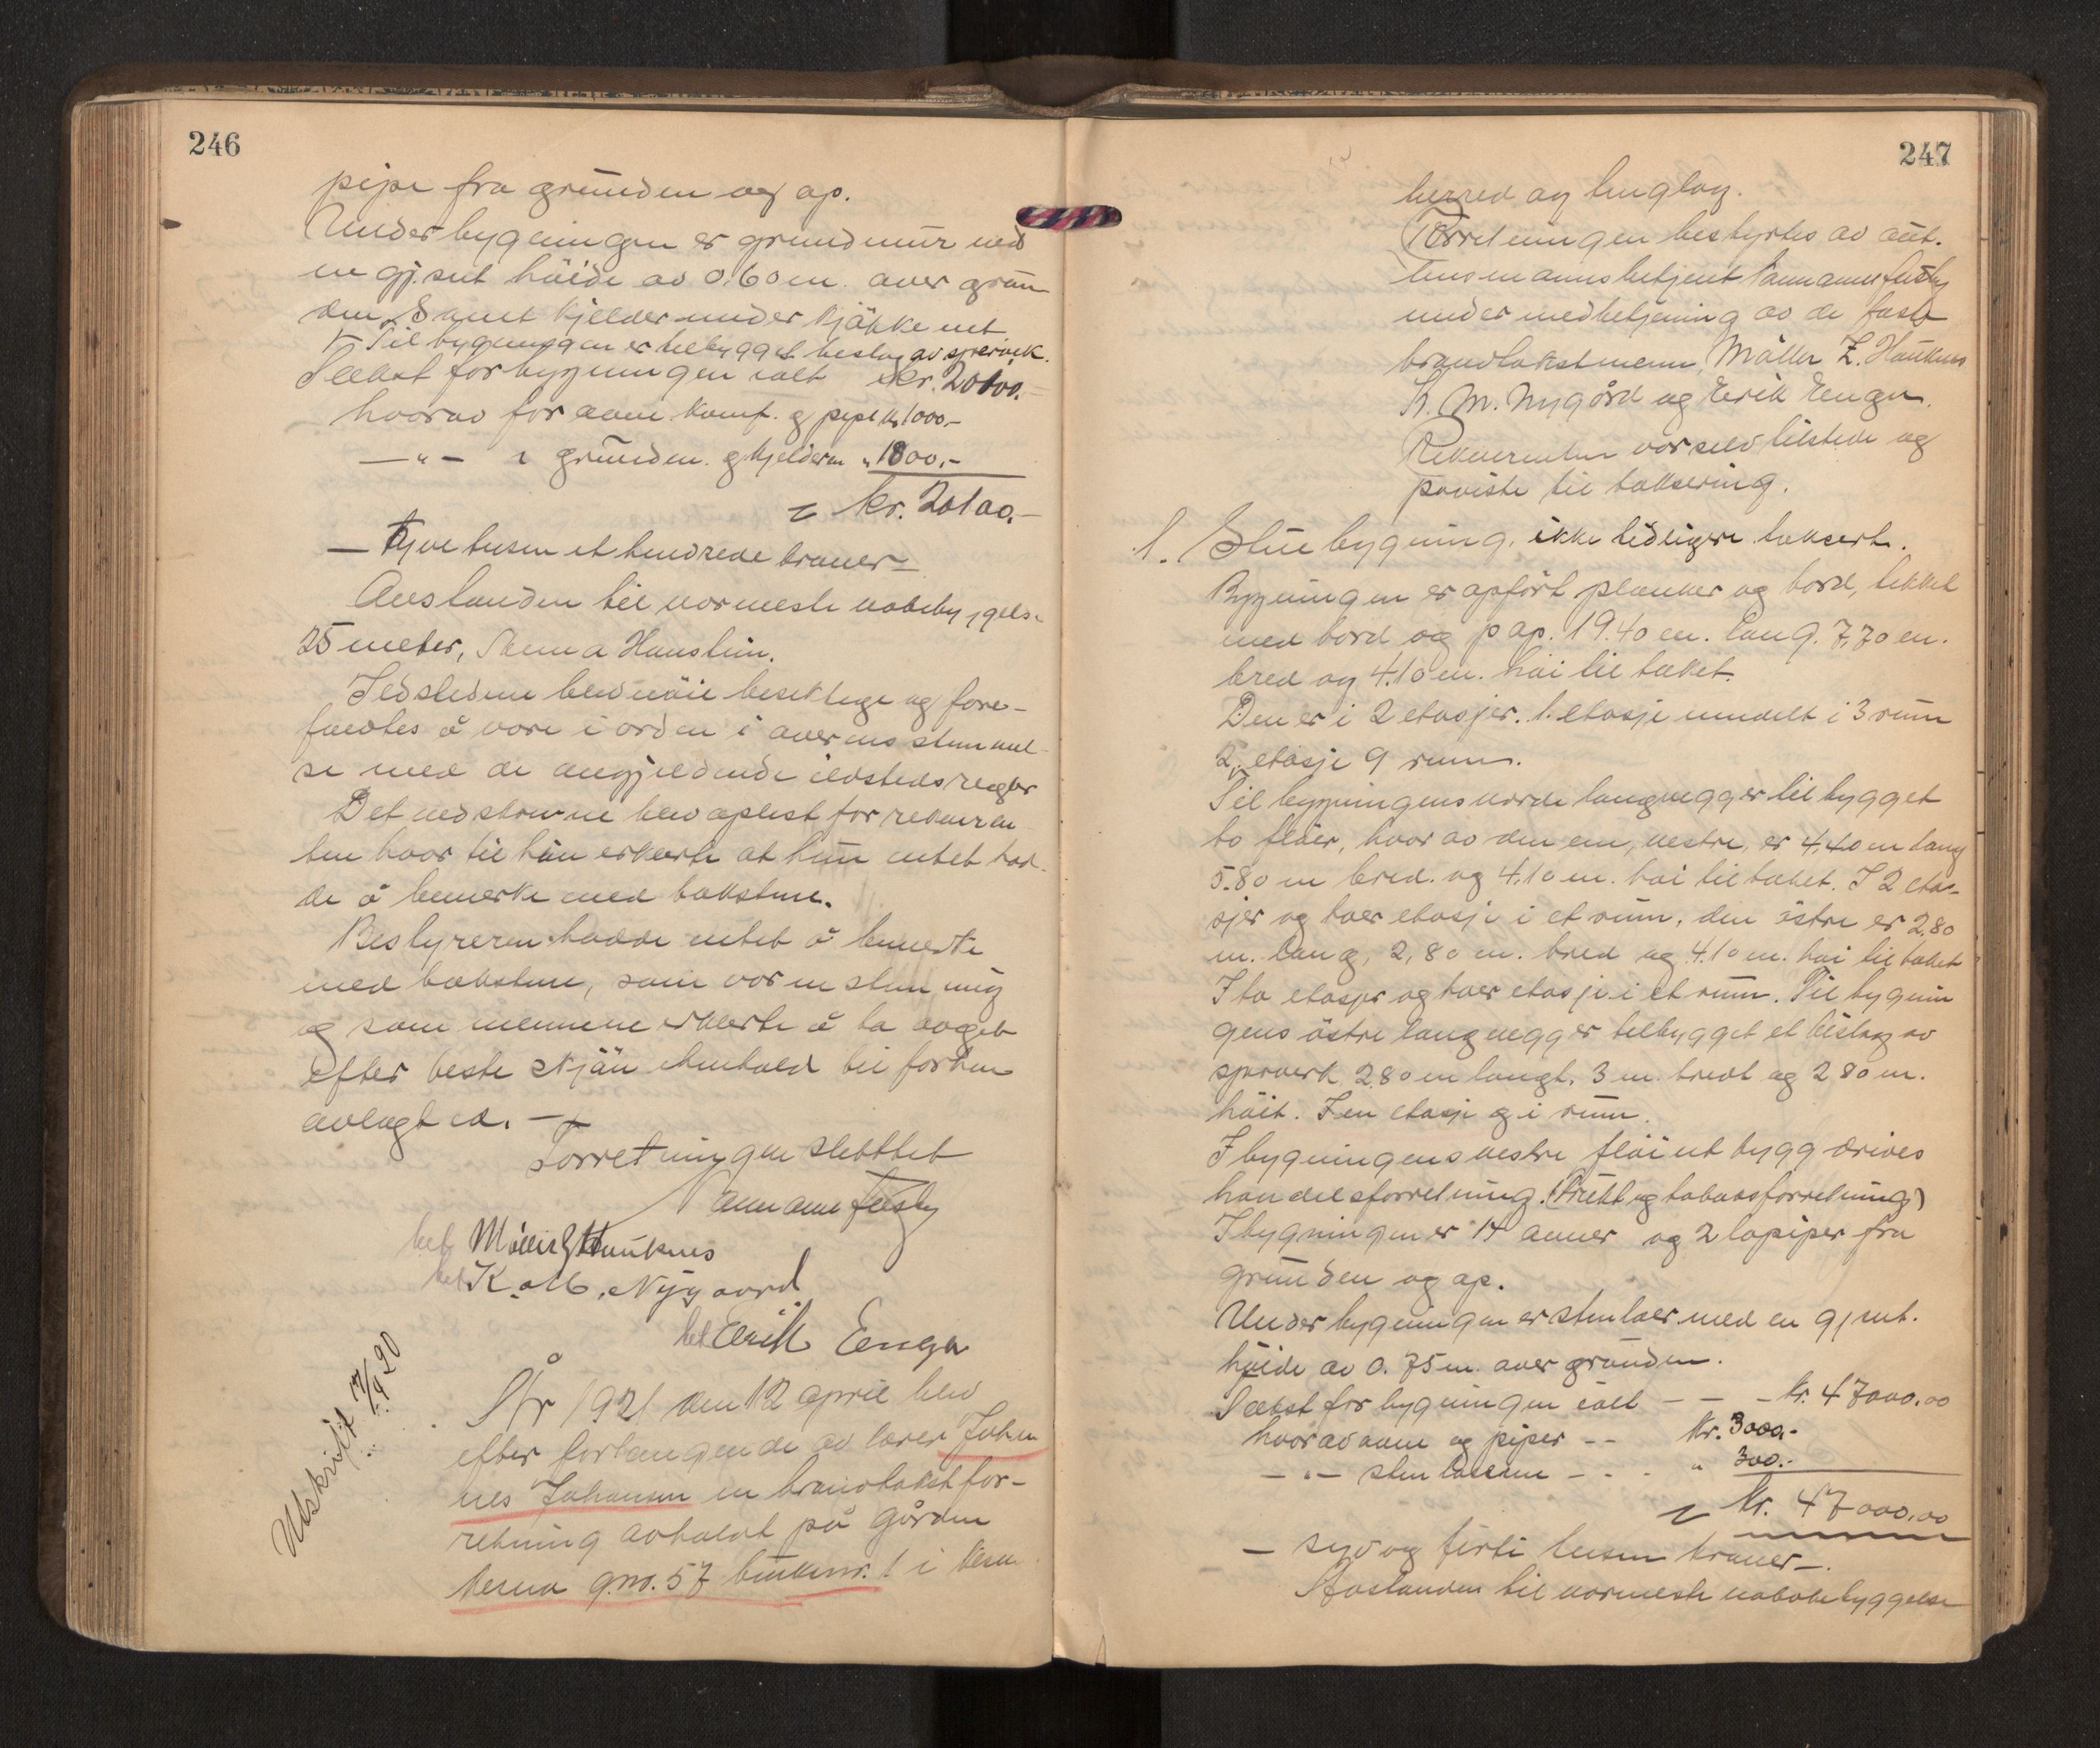 246
pipe fra grunden og op.
Under bygningen er grundmur med
en gj.snt høide av 0.60 m. over grun-
den Samt kjelder under kjøkkenet
⊢ Til bygningen er tilbygget beslag av spreiverk.
Takst for bygningen ialt kr. 20100.-
hvorav for ovne komf. og pipe kr 1000.-
—"— " grunden. og kjelderen " 1800.-
kr. 20100.-
— Tyve tusen et hundrede kroner —
Avstanden til nærmeste nabobyggels.
25 meter, Hanslin.
Ildstedene blev nøie besiktige og fore-
fandtes å være i orden i overensstemmel-
se med de angjeldende ildstedsregler
Det nedskrevne blev oplest for rekviren-
ten hvor til hun erklærte at hun intet had-
de å bemerke med taksten.
Bestyreren hadde intet å bemerke
med taksten, som var enstemmig
og som mennene erklærte å ha avgit
efter beste skjøn i henhold til forhen
avlagt ed. —
Forretningen sluttet
Møller Z Hauknes
K. M. Nygaard
Erik Enga
Utskrift 17/4 20
År 1921 den 12 april blev
efter forlangende av lærer Johan
nes Johansen en brandtakstfor-
retning avholdt på gården
gno. 57 bruksnr. 1 i
247
herred og tinglag.
Forretningen bestyrtes av aut.
lensmannsbetjent
under medbetjening av de faste
brandtakstmenn, Møller Z. Hauknes
K. M. Nygård og Erik Enga.
Rekvirenten var selv tilstede og
påviste til taksering.
1. Stuebygning, ikke tidligere taksert.
Bygningen er opført planker og bord, tekket
med bord og pap. 19.40 m. lang. 7,70 m.
bred og 4.10 m. høi til taket.
Den er i 2 etasjer. 1. etasje inndelt i 3 rum
2. etasje 9 rum.
Til bygningens nordre langvegg er tilbygget
to fløier, hvorav den ene, vestre, er 4,40 m lang
5.80 m bred. og 4,10 m. høi til taket. I 2 eta-
sjer og hver etasje i et rum, den østre er 2,80
m. lang, 2,80 m. bred og 4.10 m. høi til taket
I to etasjer og hver etasje i et rum. Til bygnin
gens østre langvegg er tilbygget et bislag av
spreverk 2.80 m langt. 3 m. bredt og 2,80 m.
høit. I en etasje og i rum.
I bygningens vestre fløi utbygg drives
handelsforretning. (Frukt og tobaksforretning)
I bygningen er 14 ovner og 2 løpiper fra
grunden og op.
Under bygningen er stenlaer med en gj snt.
høide av 0.75 m. over grunden.
Takst for bygningen ialt — — — kr. 47000.00
hvorav ovne og piper -- kr. 3000.-
— " — stenlaerne - - - " 300.-
kr. 47000.00
— syv og førti tusen kroner —.
Avstanden til nærmeste nabobebyggelse